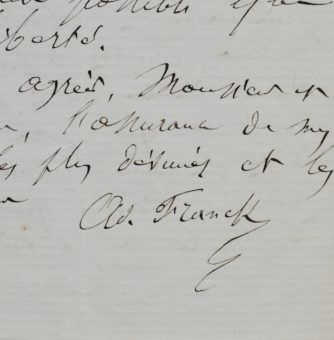 possible
berté.
agréer, Monsieur et
l'assurance de mes
les plus dévoués et les
Ad. Franck